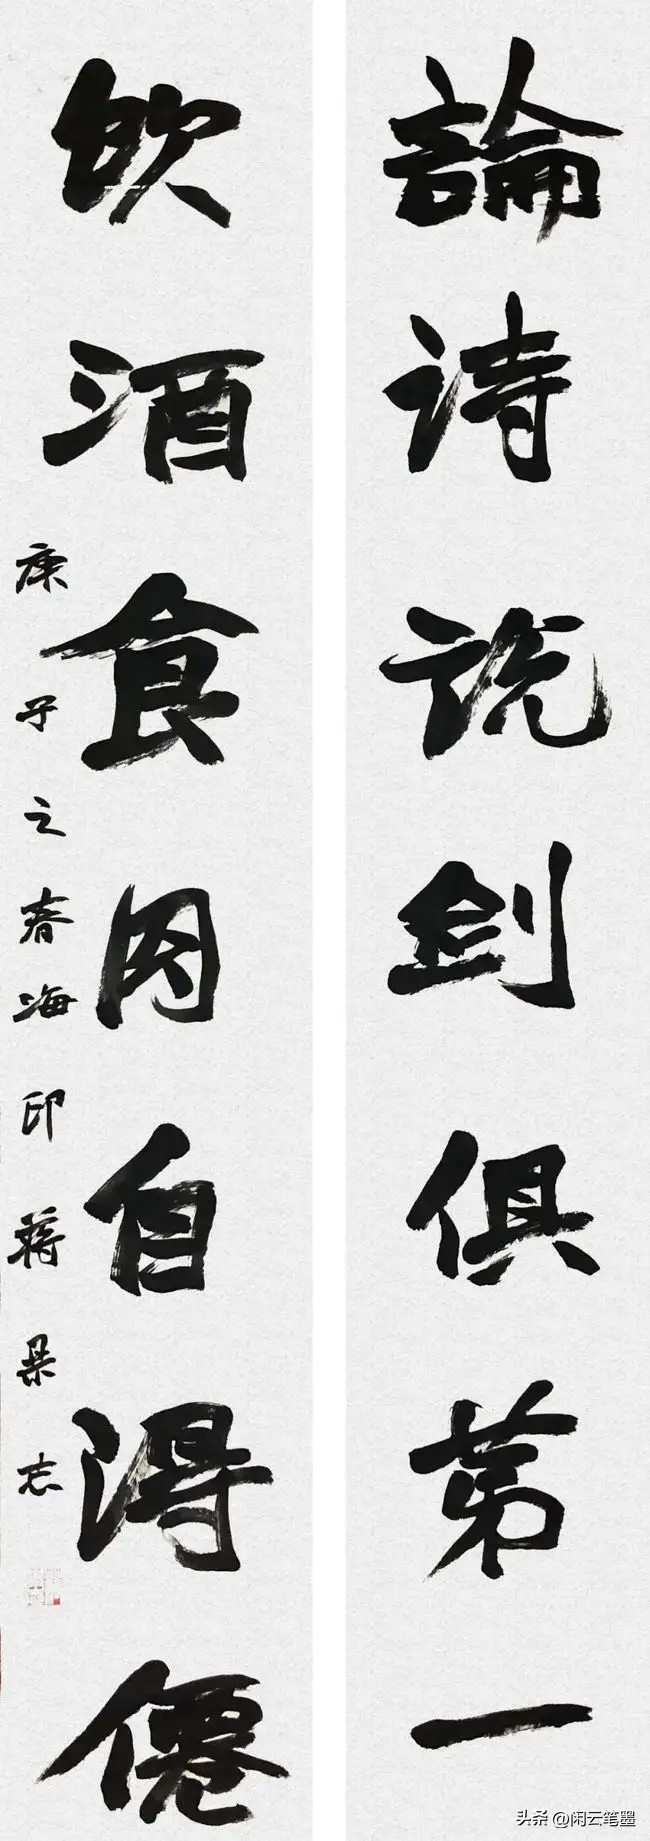 論诗说剑俱苐一
飲酒食肉自得僊
庚子之春海印蒋志
头条 @闲云笔墨